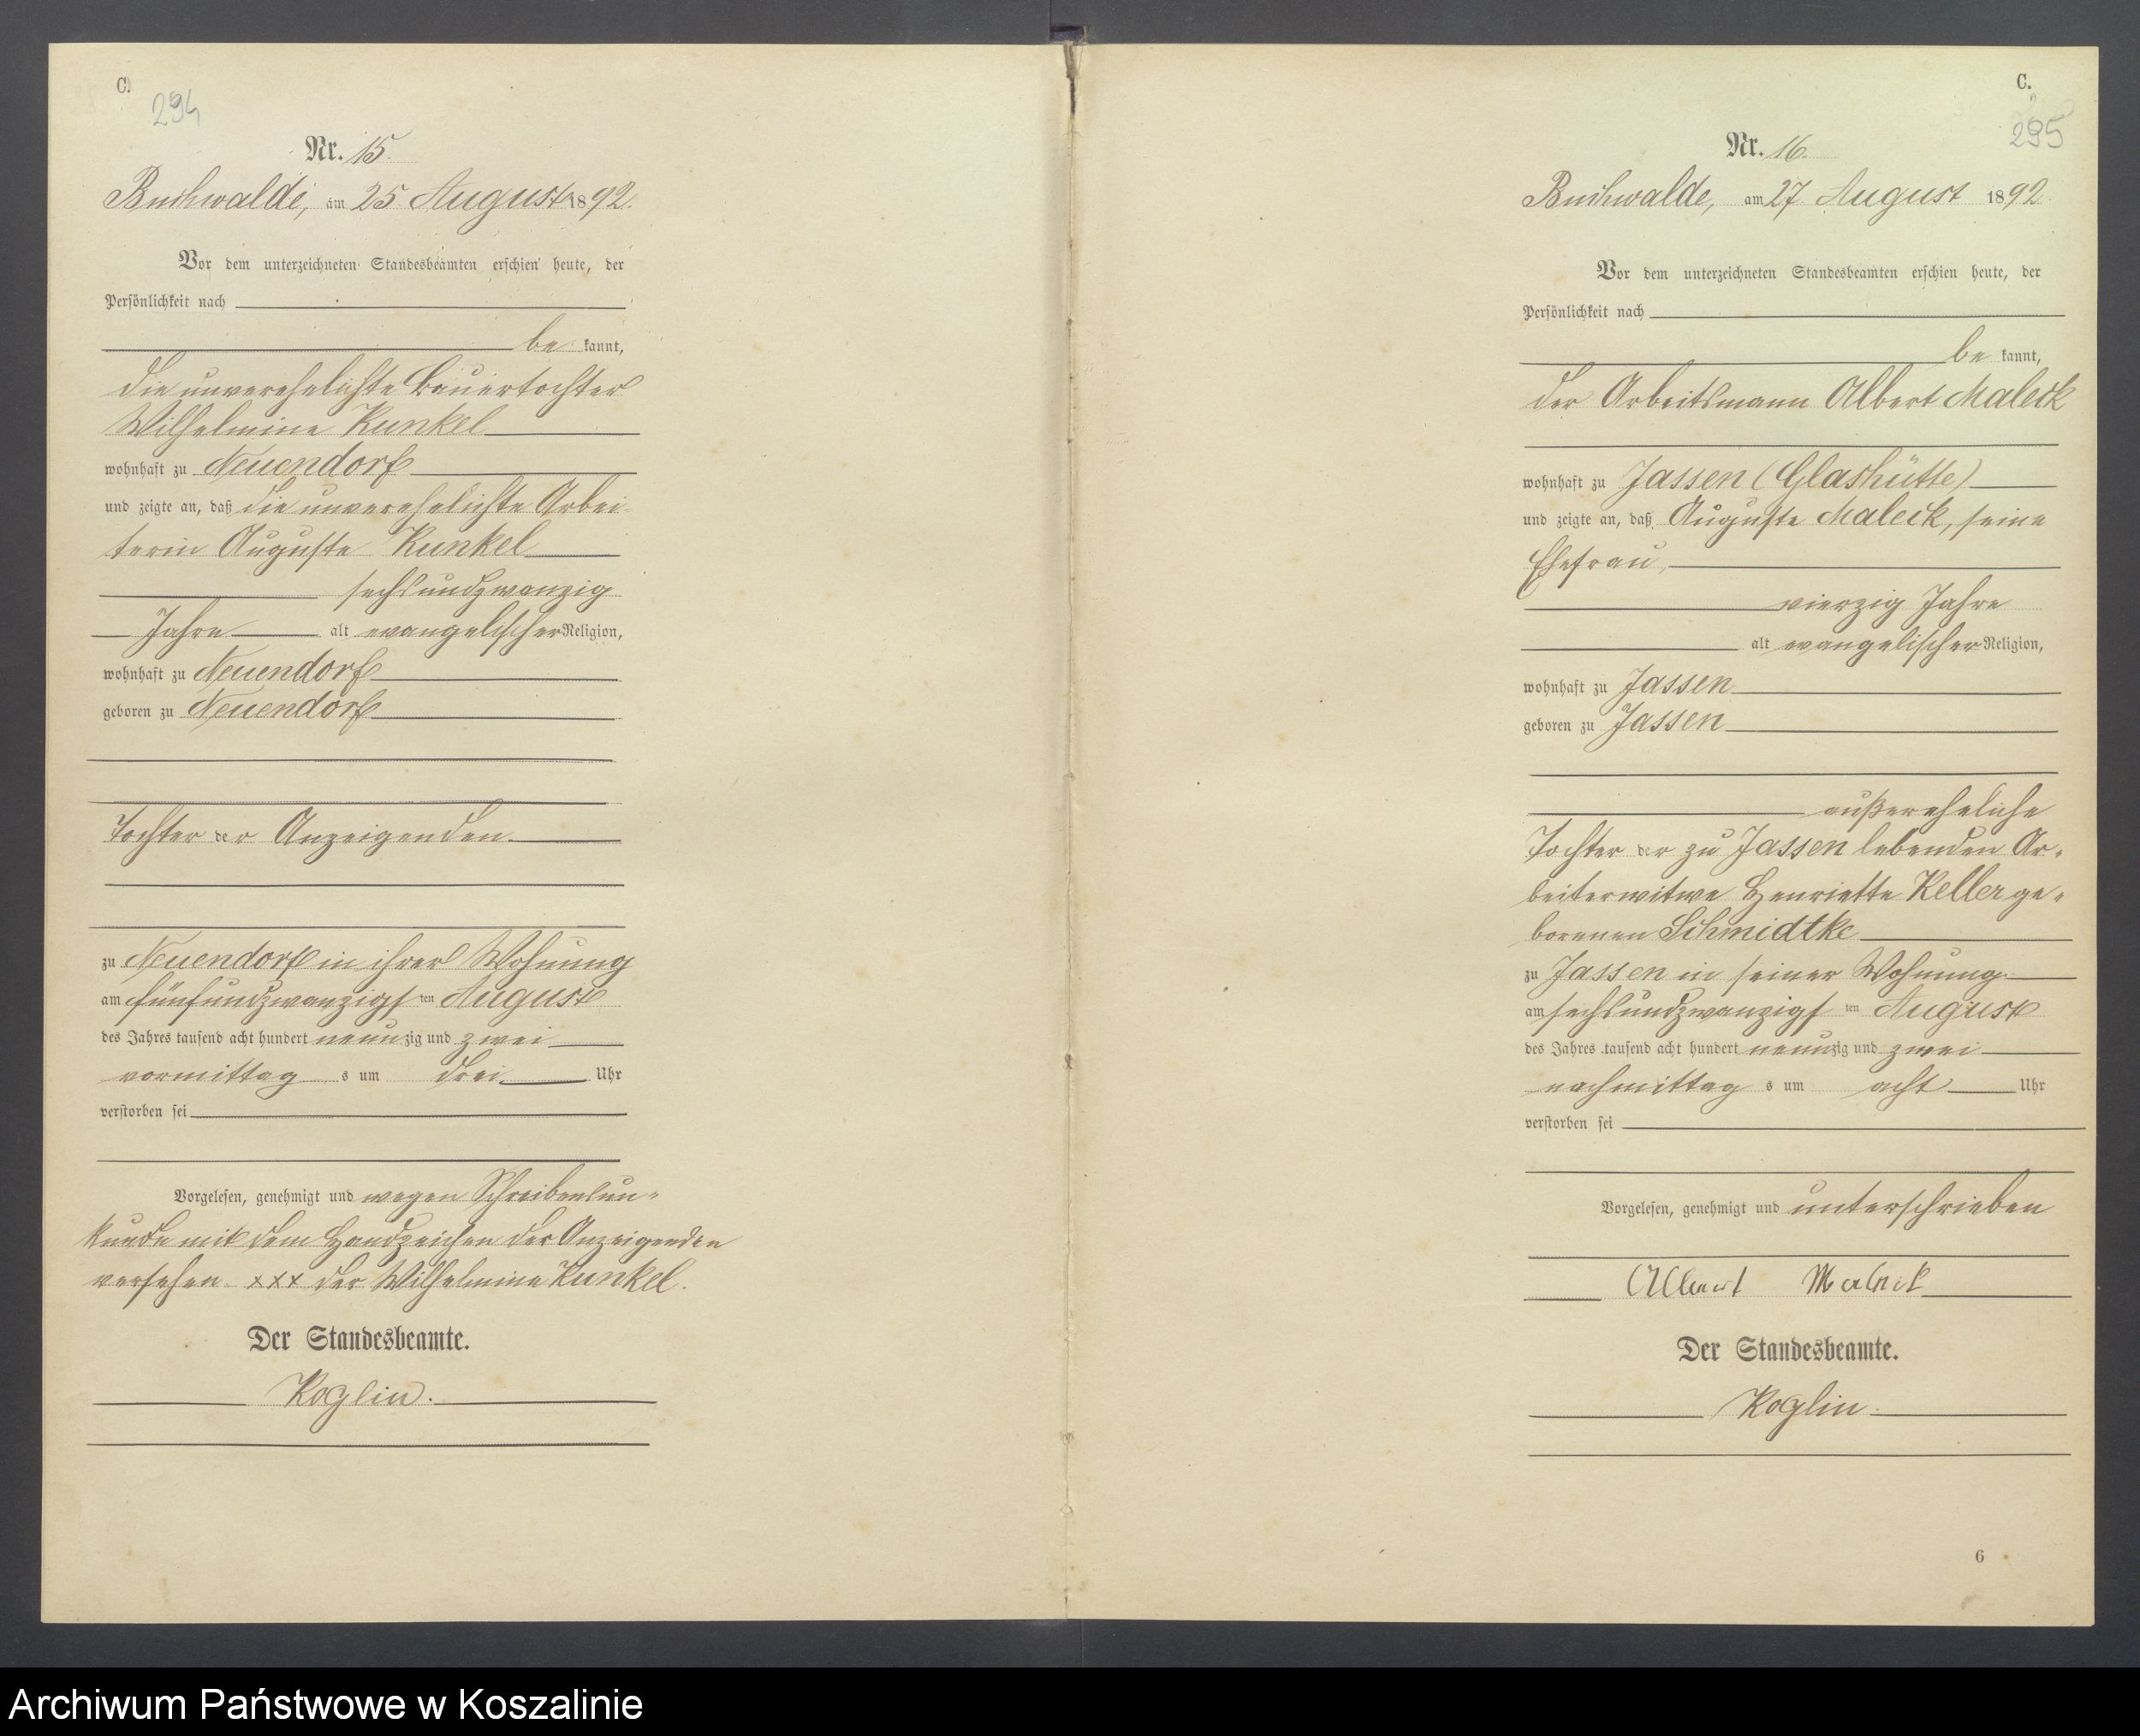 C.
294
Nr. 15.
Buchwalde, am 25. August 1892.
Vor dem unterzeichneten Standesbeamten erschien heute, der
Persönlichkeit nach
be kannt,
die unverehelichte Bauertochter
Wilhelmine Kunkel
wohnhaft zu Neuendorf
und zeigte an, daß die unverehelichte Arbei-
terin Auguste Kunkel
sechsundzwanzig
Jahre alt evangelischer Religion,
wohnhaft zu Neuendorf
geboren zu Neuendorf
Tochter der Anzeigenden
zu Neuendorf in ihrer Wohnung
am fünfundzwanzigsten August
des Jahres tausend acht hundert neunzig und zwei
vormittags um drei Uhr
verstorben sei
Vorgelesen, genehmigt und wegen Schreibensun-
kunde mit dem Handzeichen der Anzeigenden
versehen. xxx der Wilhelmine Kunkel.
Der Standesbeamte.
Koglin.
C.
295
Nr. 16.
Buchwalde, am 27. August 1892.
Vor dem unterzeichneten Standesbeamten erschien heute, der
Persönlichkeit nach
be kannt,
der Arbeitsmann Albert Maleck
wohnhaft zu Jassen (Glashütte)
und zeigte an, daß Auguste Maleck, seine
Ehefrau,
vierzig Jahre
alt evangelischer Religion,
wohnhaft zu Jassen
geboren zu Jassen
außereheliche
Tochter der zu Jassen lebenden Ar-
beiterwitwe Henriette Keller ge-
borenen Schmidtke
zu Jassen in seiner Wohnung
am sechsundzwanzigsten August
des Jahres tausend acht hundert neunzig und zwei
nachmittags um acht Uhr
verstorben sei
Vorgelesen, genehmigt und unterschrieben
Albert Maleck
Der Standesbeamte.
Koglin.
6
Archiwum Państwowe w Koszalinie